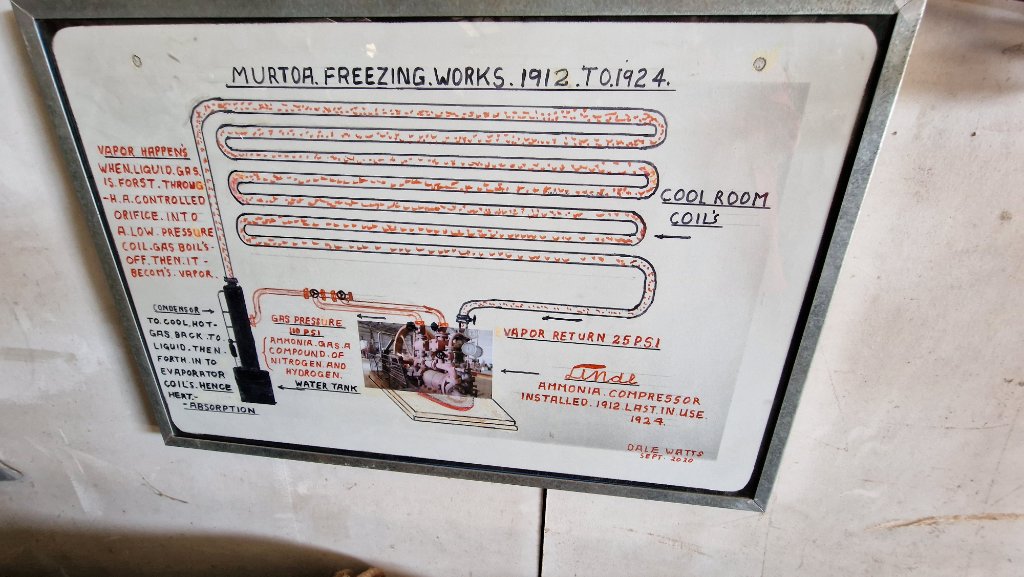 MURTOA.FREEZING.WORKS.1912.TO.1924.
VAPOR HAPPENS
WHEN.LIQUID.GAS.
IS.FORST.THROUG
-H.A.CONTROLLED
ORIFICE.INTO
A.LOW.PRESSURE
COIL.GAS BOIL'S-
OFF.THEN.IT-
BECOM'S.VAPOR.
COOL ROOM
COIL'S
CONDENSOR
TO.COOL.HOT-
GAS BACK.TO
LIQUID.THEN.
FORTH.IN TO
EVAPORATOR
COIL'S.HENCE
HEAT.-
-ABSORPTION
GAS PRESSURE
PSI
AMMONIA.GAS.A
COMPOUND.OF
NITROGEN.AND
HYDROGEN.
WATER TANK
VAPOR RETURN 25PSI
Linde
AMMONIA.COMPRESSOR
INSTALLED.1912.LAST.IN.USE.
1924.
DALE WATTS
SEPT. 2020